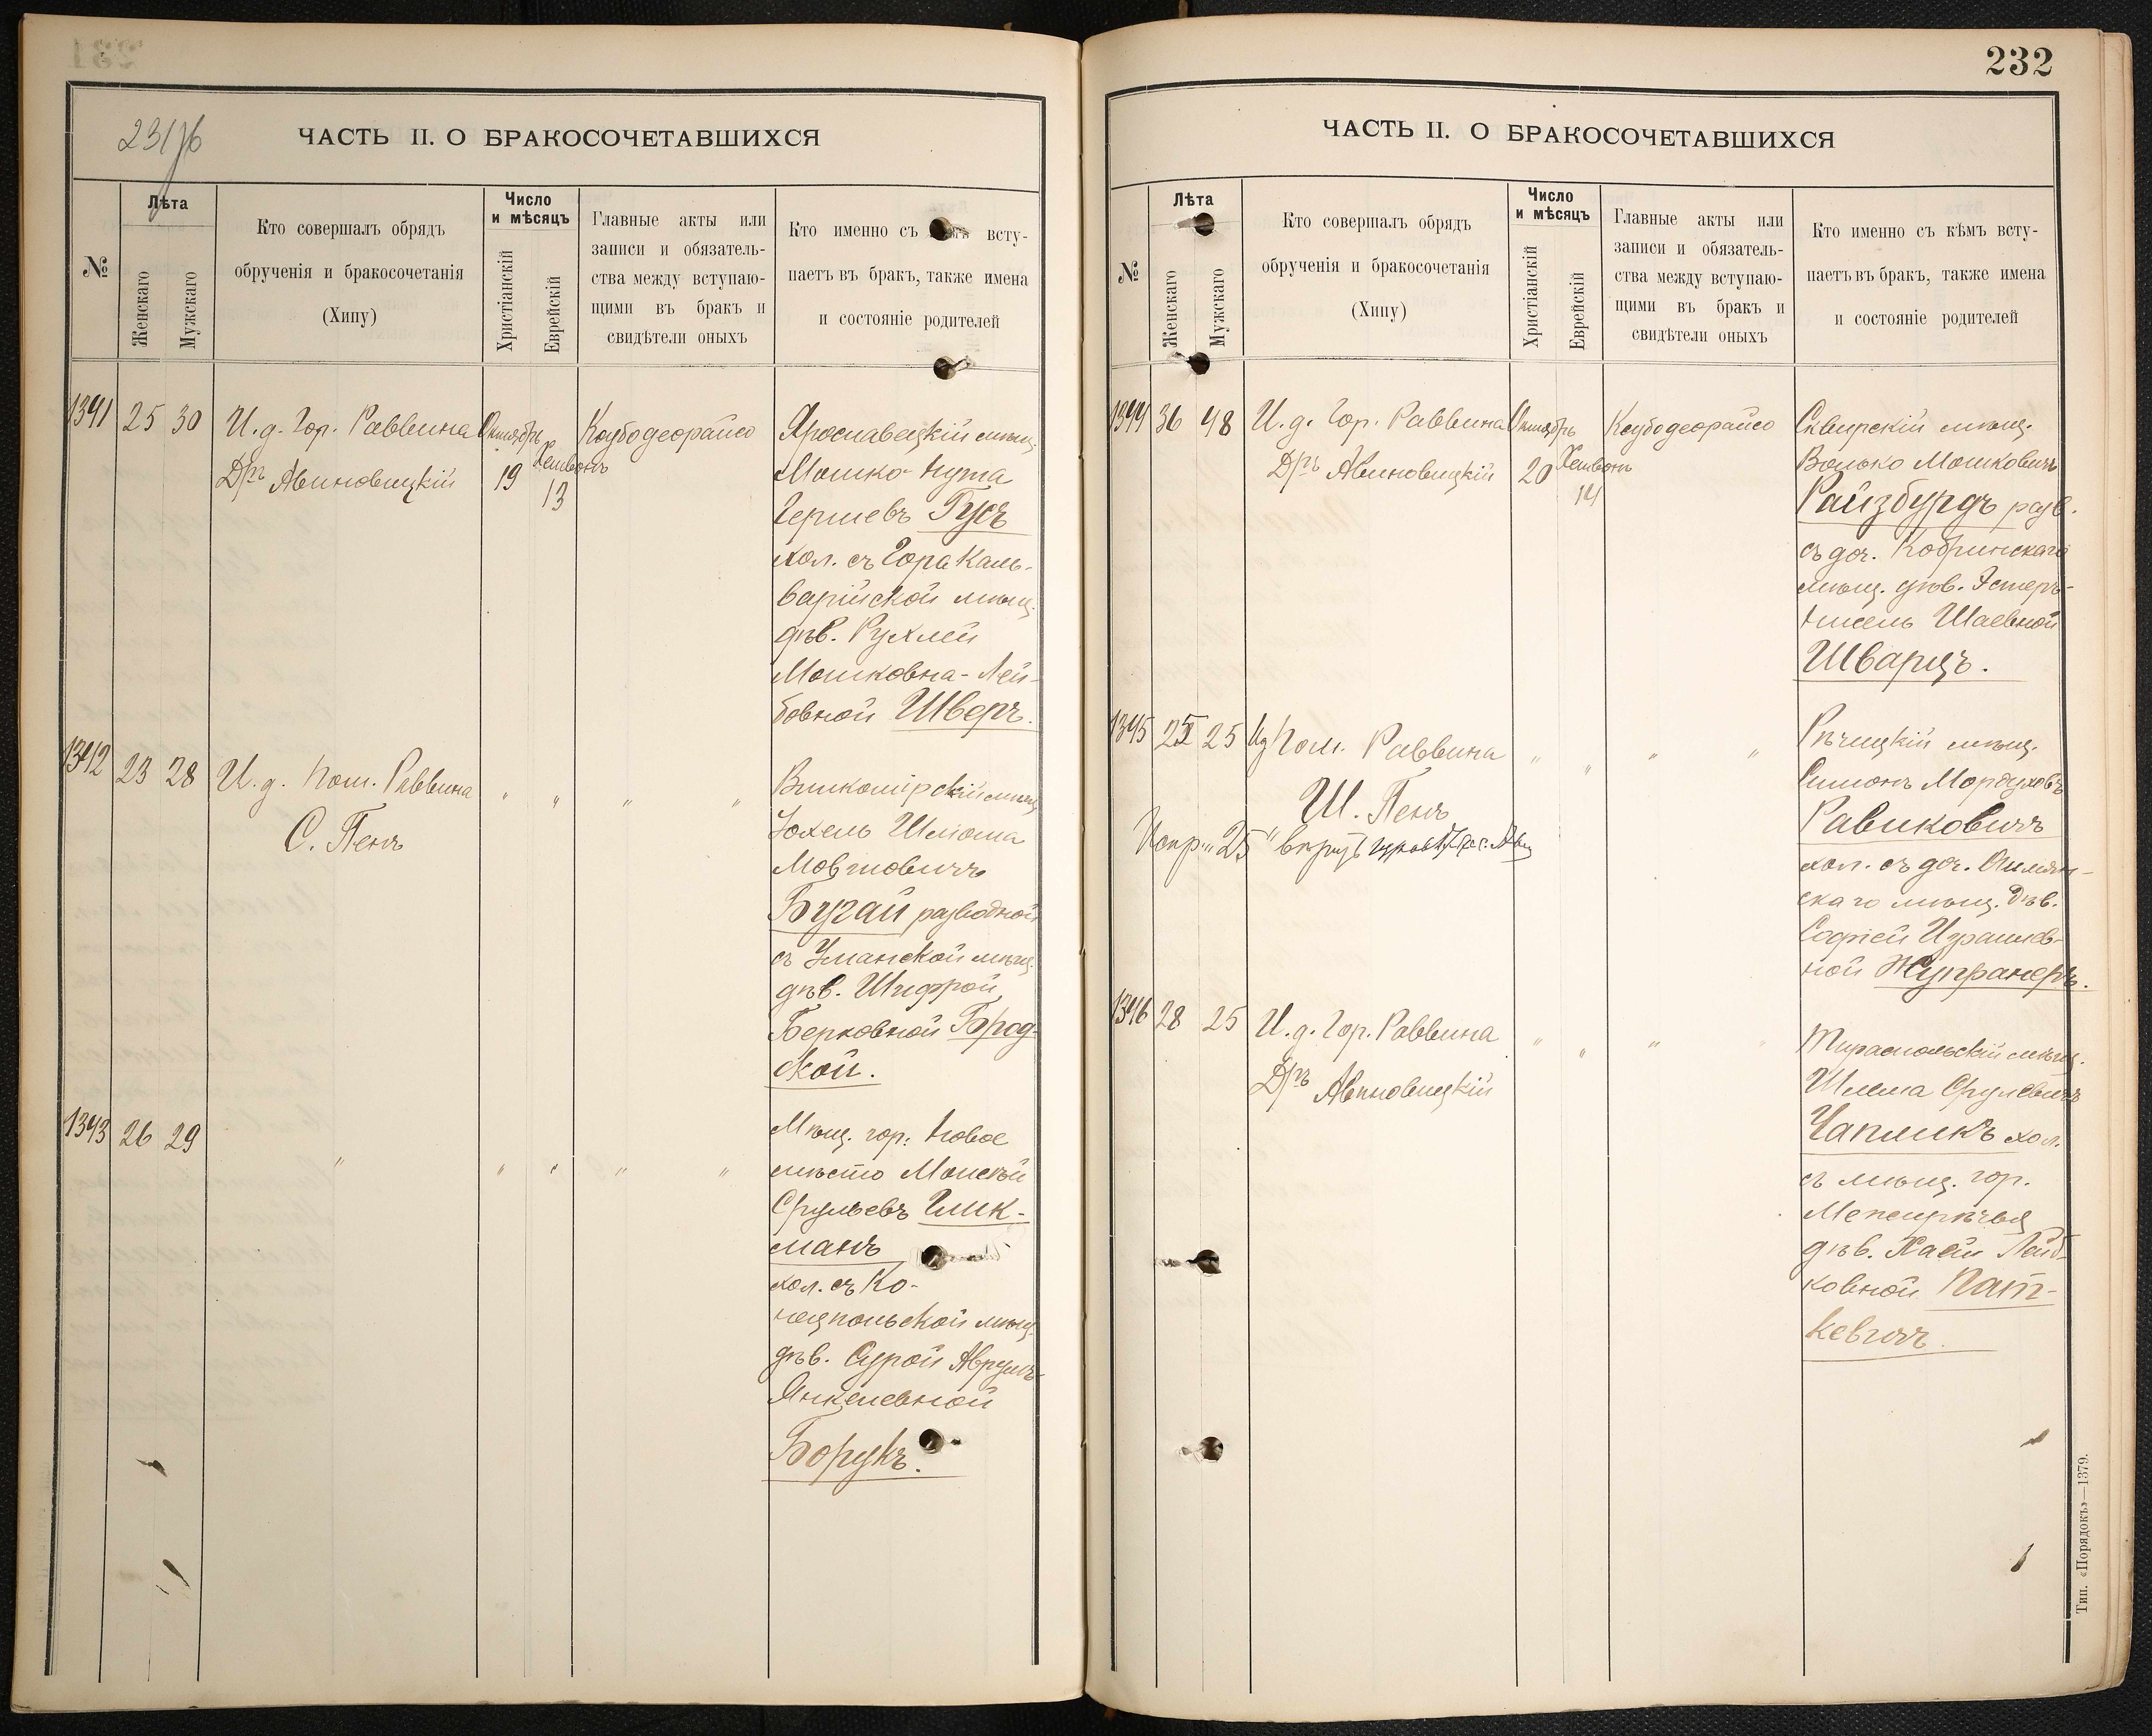 231 об
ЧАСТЬ II. О БРАКОСОЧЕТАВШИХСЯ
№
Лѣта
Женскаго
Мужскаго
Кто совершалъ обрядъ
обрученія и бракосочетанія
(Хипу)
Число
и мѣсяцъ
Христіанскій
Еврейскій
Главные акты или
записи и обязатель-
ства между вступаю-
щими въ бракъ и
свидѣтели оныхъ
Кто именно съ всту-
паетъ въ бракъ, также имена
и состояніе родителей
1341 25 30
И. д. Гор. Раввина
Дръ Авиновицкій
Октябрь
19
Хешвонъ
13
Ксубодеорайсо
Ярославецкій мѣщ.
Мошко-Нута
Гершевъ Гусъ
хол. съ Гора Каль-
варійской мѣщ.
дѣв. Рухлей
Мошковна-Лей-
бовной Шверъ.
1342 23 28
И. д. Пом. Раввина
С. Пенъ
" " " "
Вилкомірскій мѣщ.
Іохель Шліома
Мовшовичъ
Бугай разводной
съ Уманской мѣщ.
дѣв. Шифрой
Берковной Брод-
ской.
1343 26 29
" " " " "
Мѣщ. гор. Новое
мѣсто Моисѣй
Срульевъ Глик-
манъ
хол. съ Ко-
нецпольской мѣщ.
дѣв. Сурой Аврумъ-
Янкелевной
Борукъ.
232
ЧАСТЬ II. О БРАКОСОЧЕТАВШИХСЯ
№
Лѣта
Женскаго
Мужскаго
Кто совершалъ обрядъ
обрученія и бракосочетанія
(Хипу)
Число
и мѣсяцъ
Христіанскій
Еврейскій
Главные акты или
записи и обязатель-
ства между вступаю-
щими въ бракъ и
свидѣтели оныхъ
Кто именно съ кѣмъ всту-
паетъ въ бракъ, также имена
и состояніе родителей
1344 36 48
И. д. Гор. Раввина
Дръ Авиновицкій
Октябрь
20
Хешвонъ
14
Ксубодеорайсо
Сквирскій мѣщ.
Волько Мошковичъ
Райзбургъ разв.
съ доч. Кобринскаго
мѣщ. дѣв. Эстеръ-
Нисель Шаевной
Шварцъ.
1345 25 25
Ид Пом. Раввина
Ш. Пенъ
Испр. "25"
" " " "
Рѣчицкій мѣщ.
Симонъ Мордуховъ
Равиковичъ
хол. съ доч. Ошмян-
скаго мѣщ. дѣв.
Софіей Израилев-
ной Жупранеръ.
1346 28 25
И. д. Гор. Раввина
Дръ Авиновицкій
" " " "
Тираспольскій мѣщ.
Шлема Срулевичъ
Чапликъ хол.
съ мѣщ. гор.
Межирѣчья
дѣв. Хаей Лейб-
ковной Пат-
кевичъ.
Тип. «Порядокъ»—1379.